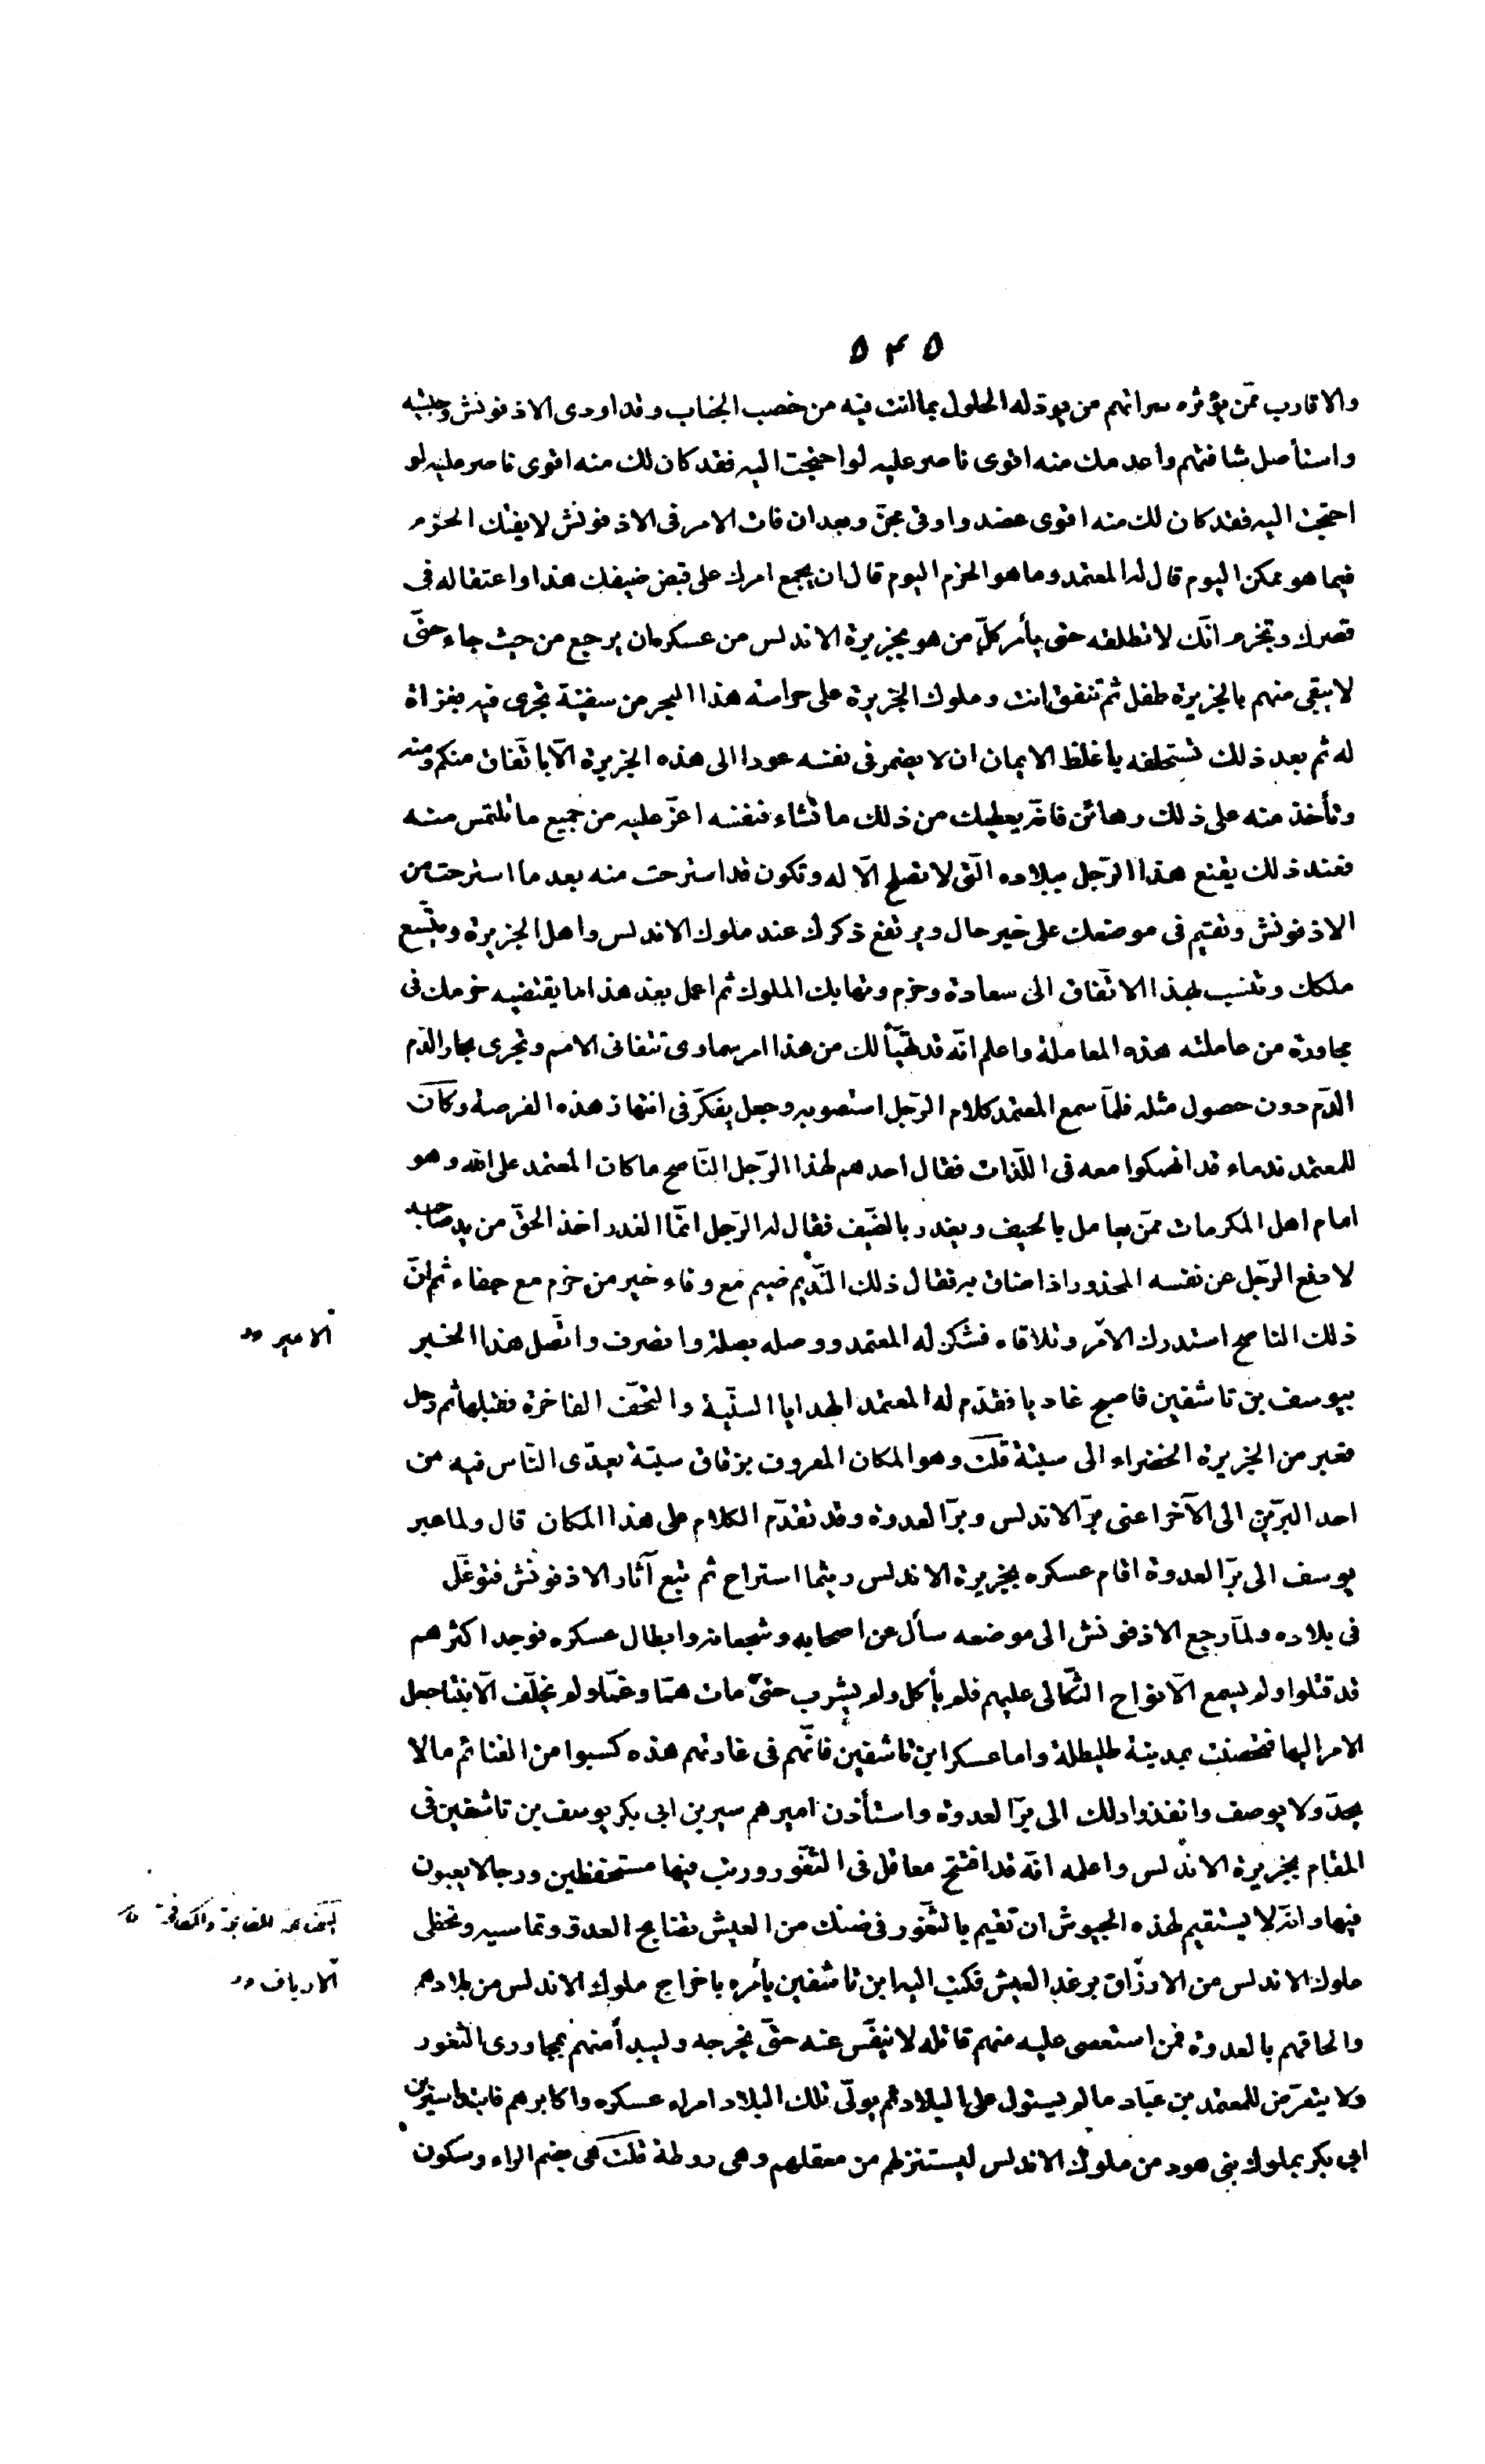 ٥٣٥
والاقارب ممّن يؤثره سراتهم من يودّ له الحلول بما انت فيه من خصب الجناب وقد اودى الاذفونش وجيشه
واستأصل شافتهم واعدمك منه اقوى ناصر عليه لو احتجت اليه فقد كان لك منه اقوى ناصر عليه لو
احتجت اليه فقد كان لك منه اقوى عضد واوقى مجنّ وبعد ان فات الامر فى الاذفونش لا يفتك الحزم
فيما هو ممكن اليوم قال له المعتمد وما هو الحزم اليوم قال ان يجمع امرك على قبض ضيفك هذا واعتقاله فى
قصرك وتجزم انّك لا تطلقه حتى يأمر كلّ من هو بجزيرة الاندلس من عسكره ان يرجع من حيث جاء حتّى
لا يبقى منهم بالجزيرة طفل ثم تتفق انت وملوك الجزيرة على حراسة هذا البحر من سفينة تجرى فيه بغزاة
له ثم بعد ذلك تستحلفه باغلظ الايمان ان لا يضمر فى نفسه عودا الى هذه الجزيرة الّا باتّفاق منكم ومنه
وتأخذ منه على ذلك رهائن فانّه يعطيك من ذلك ما تشاء فنفسه اعزّ عليه من جميع ما تلتمس منه
فعند ذلك يقنع هذا الرّجل ببلاده الّتى لا تصلح الّا له وتكون قد استرحت منه بعد ما استرحت من
الاذفونش وتقيم فى موضعك على خير حال ويرتفع ذكرك عند ملوك الاندلس واهل الجزيرة ويتّسع
ملكك وتنسب لهذا الاتّفاق الى سعادة وحزم وتهابك الملوك ثم اعمل بعد هذا ما يقتضيه حزمك فى
مجاورة من عاملته هذه المعاملة واعلم انّه قد تهيّأ لك من هذا امر سماوى تتفانى الامم وتجرى بحار الدّم
الدّم دون حصول مثله فلمّا سمع المعتمد كلام الرّجل استصوبه وجعل يفكّر فى انتهاز هذه الفرصة وكان
للمعتمد ندماء قد انهمكوا معه فى اللّذات فقال احدهم لهذا الرّجل النّاصح ما كان المعتمد على الله وهو
امام اهل المكرمات ممّن يعامل بالحيف ويغدر بالضّيف فقال له الرّجل انّما الغدر اخذ الحقّ من يد صاحبه
لا دفع الرّجل عن نفسه المحذور اذا ضاق به فقال ذلك النّديم ضيم مع وفاء خير من حزم مع جفاء ثم انّ
ذلك الناصح استدرك الامر وتلافاه فشكر له المعتمد ووصله بصلة وانصرف واتّصل هذا الخبر
الامير
بيوسف بن تاشفين فاصبح غاديا فقدّم له المعتمد الهدايا السنيّة والتحف الفاخرة فقبلها ثم رحل
فعبر من الجزيرة الخضراء الى سبتة قلت وهو المكان المعروف بزقاق سبتة يعدّى النّاس فيه من
احد البرّين الى الآخر اعنى برّ الاندلس وبرّ العدوة وقد تقدّم الكلام على هذا المكان قال ولما عبر
يوسف الى برّ العدوة اقام عسكره بجزيرة الاندلس ريثما استراح ثم تبع آثار الاذفونش فتوغّل
فى بلاده ولمّا رجع الاذفونش الى موضعه سأل عن اصحابه وشجعانه وابطال عسكره فوجد اكثرهم
قد قتلوا ولم يسمع الّا نواح الثكالى عليهم فلم يأكل ولم يشرب حتّى مات همّا وغمّا ولم يخلّف الّا بنتا جعل
الامر اليها فتحصنت بمدينة طليطلة واما عسكر ابن تاشفين فانّهم فى غارتهم هذه كسبوا من الغنائم ما لا
يحدّ ولا يوصف وانفذوا ذلك الى برّ العدوة واستأذن اميرهم سير بن ابى بكر يوسف بن تاشفين فى
المقام بجزيرة الاندلس واعلمه انّه قد افتتح معاقل فى الثّغور ورتب فيها مستحفظين ورجالا يغيبون
فيها وانّه لا يستقيم لهذه الجيوش ان تقيم بالثّغور فى ضنك من العيش تصابح العدو وتماسيه وتحظى
ملوك الاندلس من الارزاق برغد العيش فكتب اليه ابن تاشفين يأمره باخراج ملوك الاندلس من بلادهم
الارياف
والحاقهم بالعدوة فمن استعصى عليه منهم قاتله لا ينفّس عنه حتّى يخرجه وليبدأ منهم بمجاورى الثغور
ولا يتعرّض للمعتمد بن عبّاد ما لم يستول على البلاد ثم يولّى تلك البلاد امراء عسكره واكابرهم فابتدأ سير بن
ابى بكر بملوك بنى هود من ملوك الاندلس ليستنزلهم من معقلهم وهى روطة قلت هى بضم الراء وسكون